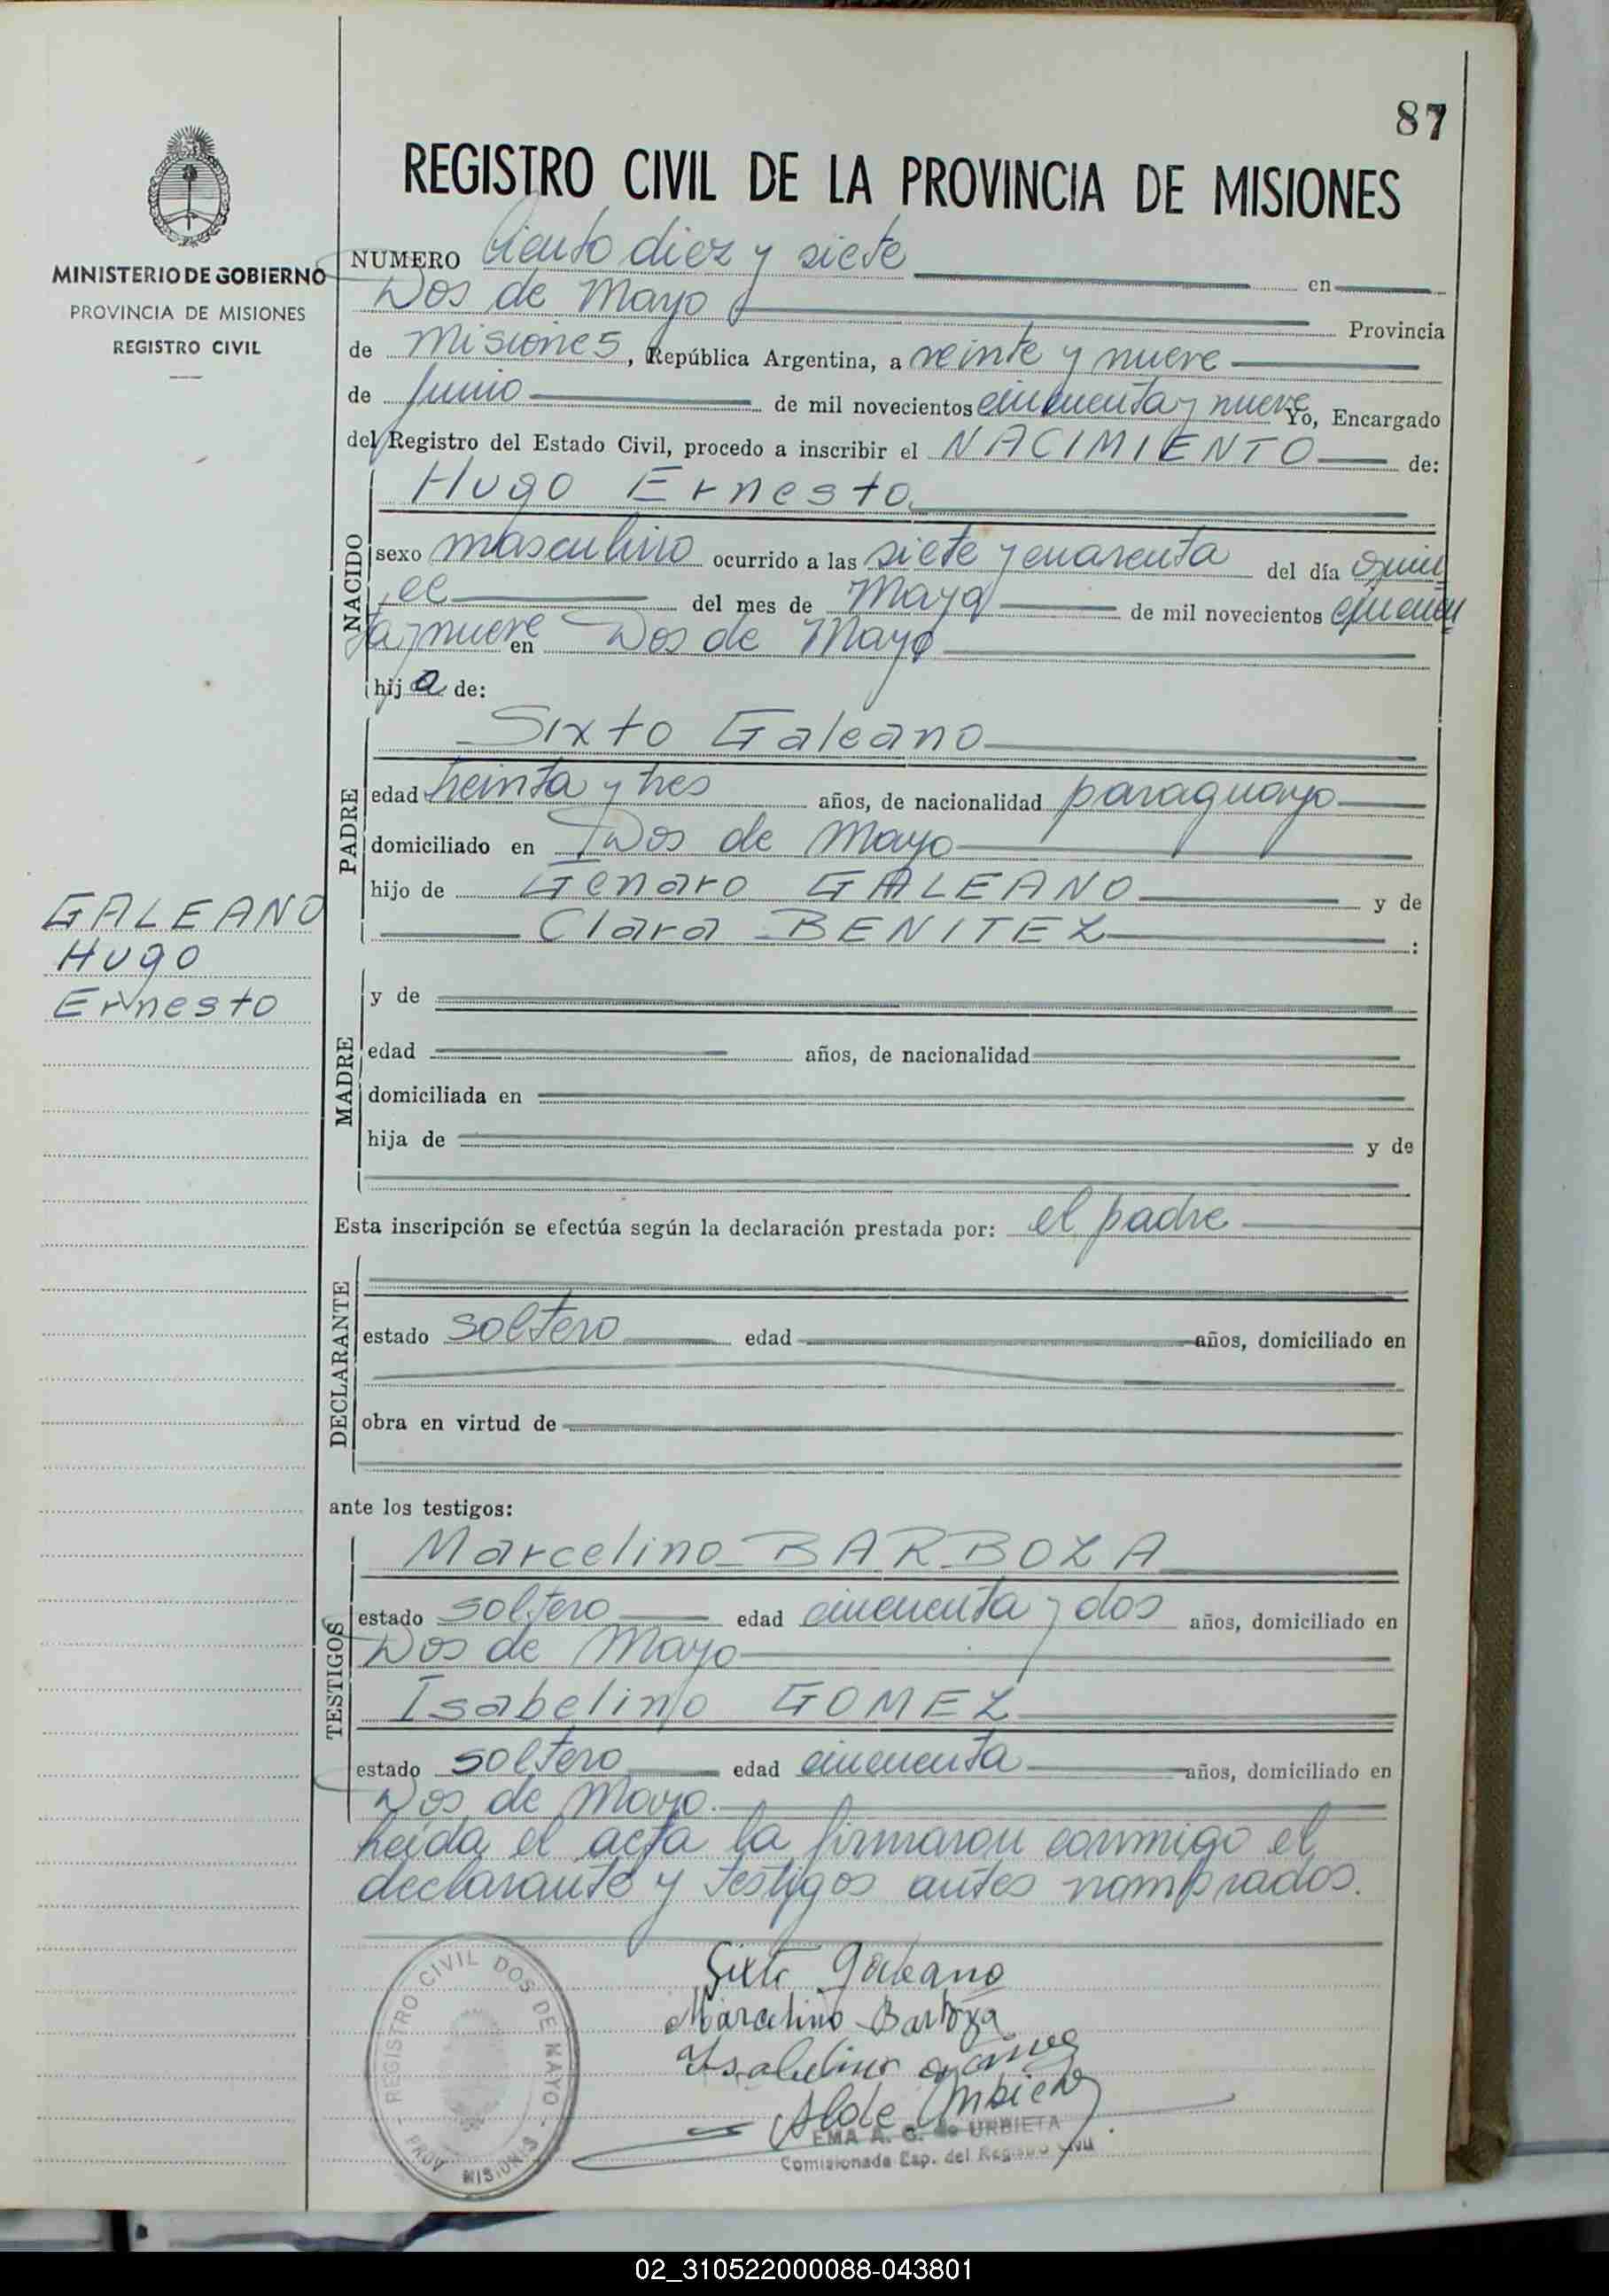 87
REGISTRO CIVIL DE LA PROVINCIA DE MISIONES
MINISTERIO DE GOBIERNO
PROVINCIA DE MISIONES
REGISTRO CIVIL
NUMERO Ciento diez y siete en
Dos de Mayo Provincia
de Misiones, República Argentina, a veinte y nueve
de Junio de mil novecientos cincuenta y nueve Yo, Encargado
del Registro del Estado Civil, procedo a inscribir el NACIMIENTO de:
NACIDO
Hugo Ernesto
sexo masculino ocurrido a las siete y cuarenta del día quin
ce del mes de Mayo de mil novecientos cincuen
ta y nueve en Dos de Mayo
hijo de:
PADRE
Sixto Galeano
edad treinta y tres años, de nacionalidad paraguayo
domiciliado en Dos de Mayo
hijo de Genaro GALEANO y de
Clara BENITEZ :
GALEANO
Hugo
Ernesto
MADRE
y de
edad años, de nacionalidad
domiciliada en
hija de y de
Esta inscripción se efectúa según la declaración prestada por: el padre
DECLARANTE
estado soltero edad años, domiciliado en
obra en virtud de
ante los testigos:
TESTIGOS
Marcelino BARBOZA
estado soltero edad cincuenta y dos años, domiciliado en
Dos de Mayo
Isabelino GOMEZ
estado soltero edad cincuenta años, domiciliado en
Dos de Mayo.
Leída el acta la firmaron conmigo el
declarante y testigos antes nombrados.
Sixto Galeano
Marcelino Barboza
Isabelino
REGISTRO CIVIL DOS DE MAYO - PROV MISIONES -
EMA A. G. de URBIETA
Comisionada Esp. del Registro Civil
02_310522000088-043801